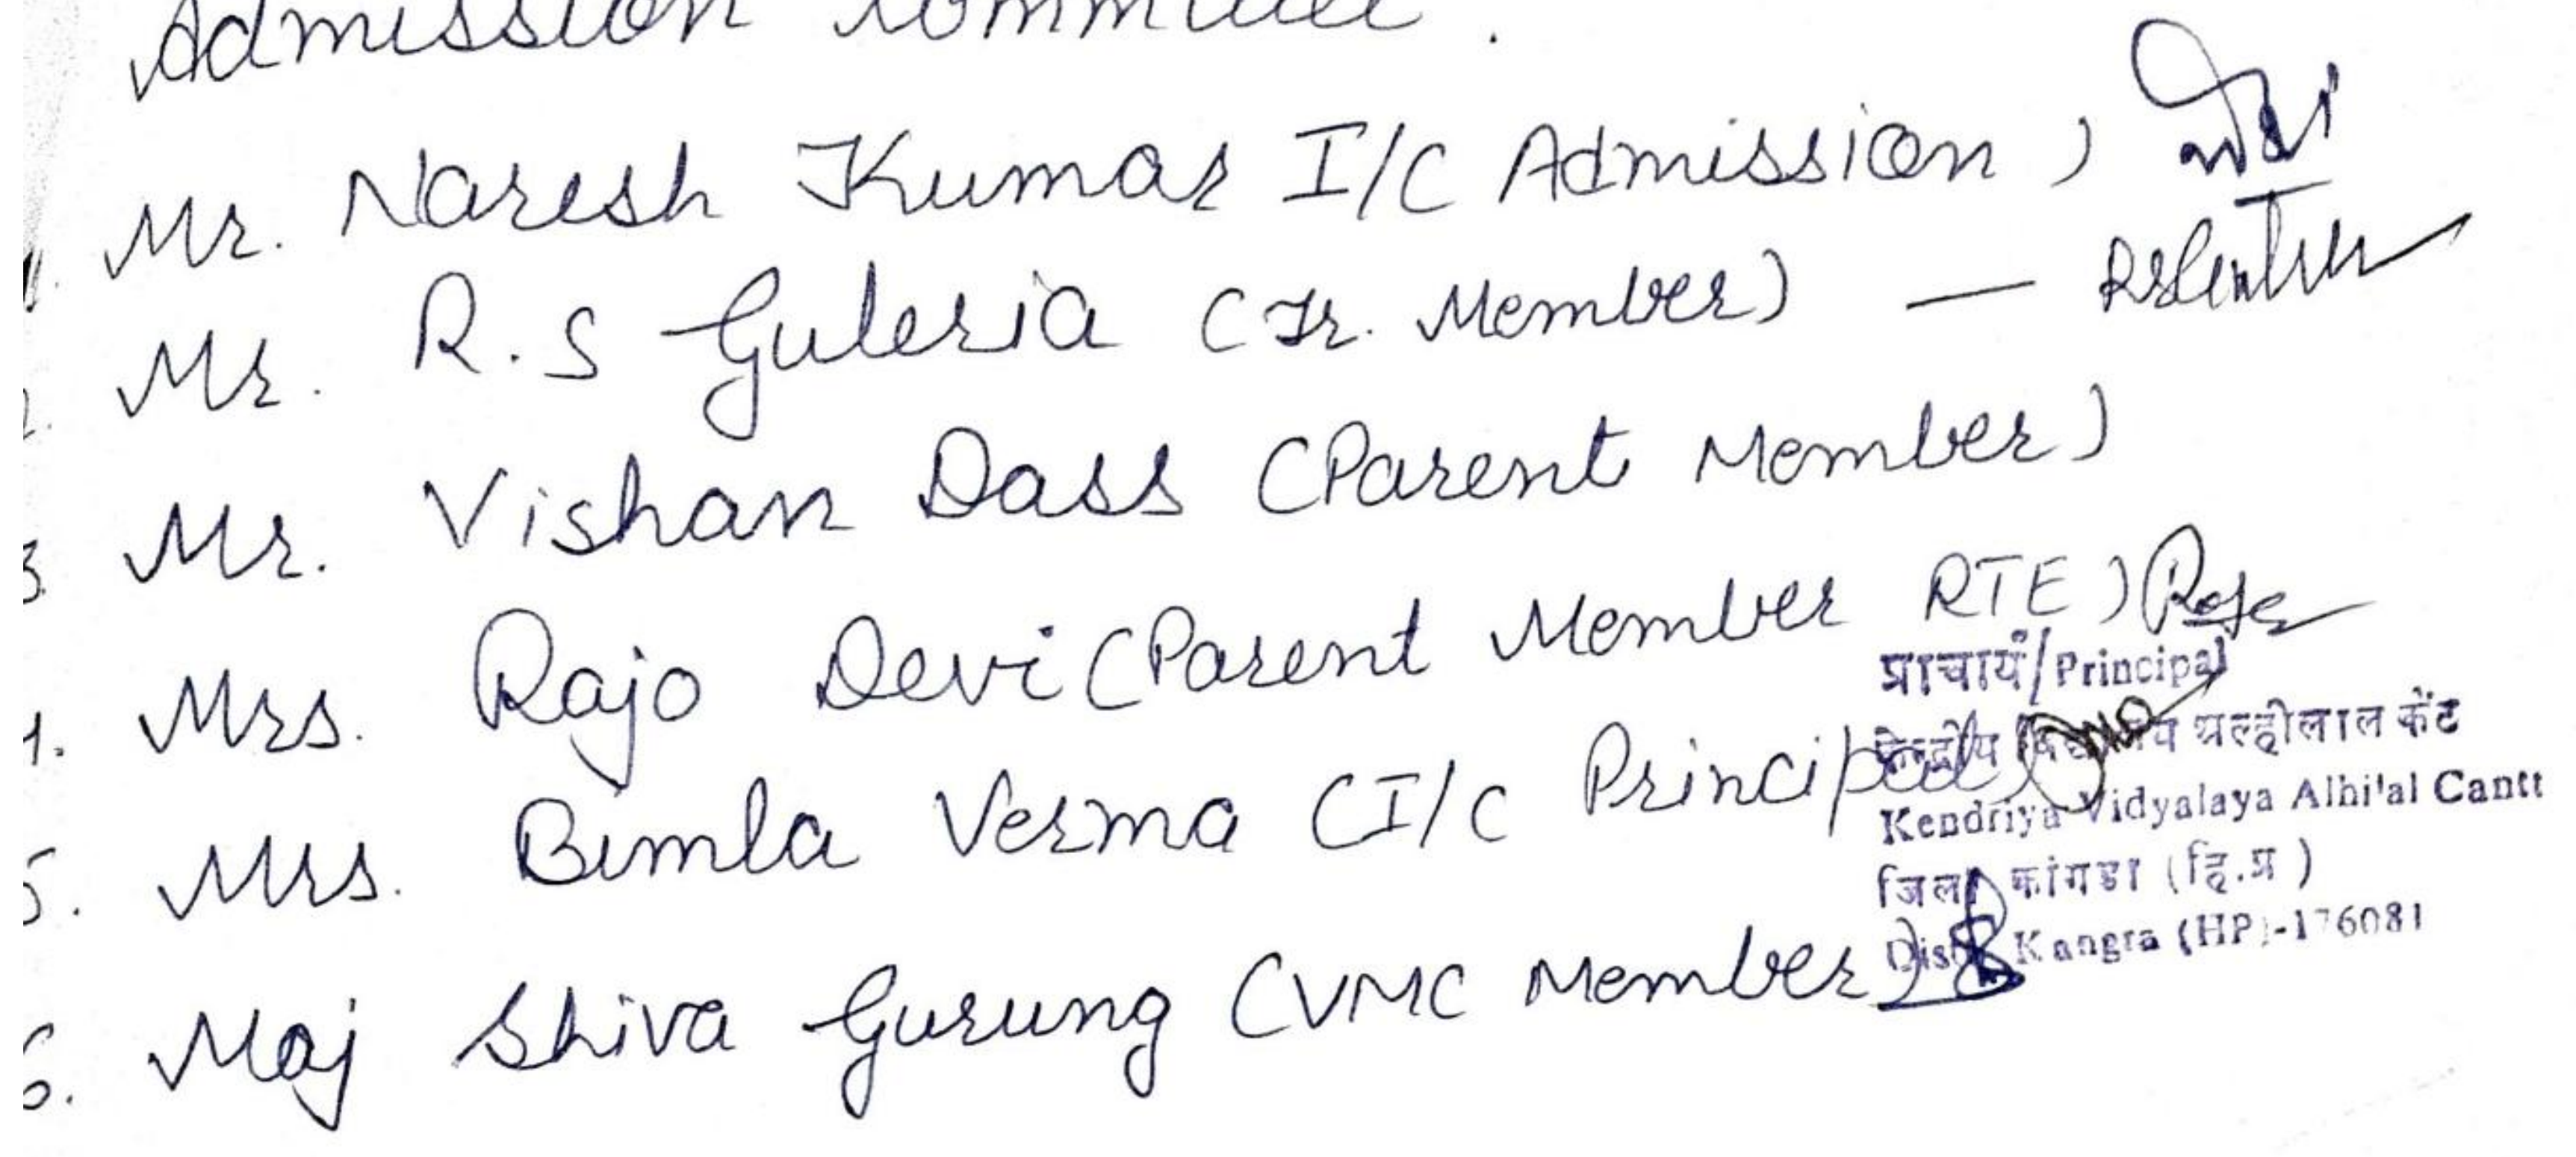 Admission Committee.
1. Mr. Naresh Kumar I/C Admission)
2. Mr. R.S Guleria (Tr. Member) —
3. Mr. Vishan Dass (Parent Member)
4. Mrs. Rajo Devi (Parent Member RTE)
5. Mrs. Bimla Verma (I/C Principal)
6. Maj Shiva Gurung (VMC Member)
प्राचार्य/Principal
केन्द्रीय विद्यालय अल्हीलाल केंट
Kendriya Vidyalaya Alhilal Cantt
जिला कांगडा (हि.प्र)
Distt. Kangra (HP)-176081